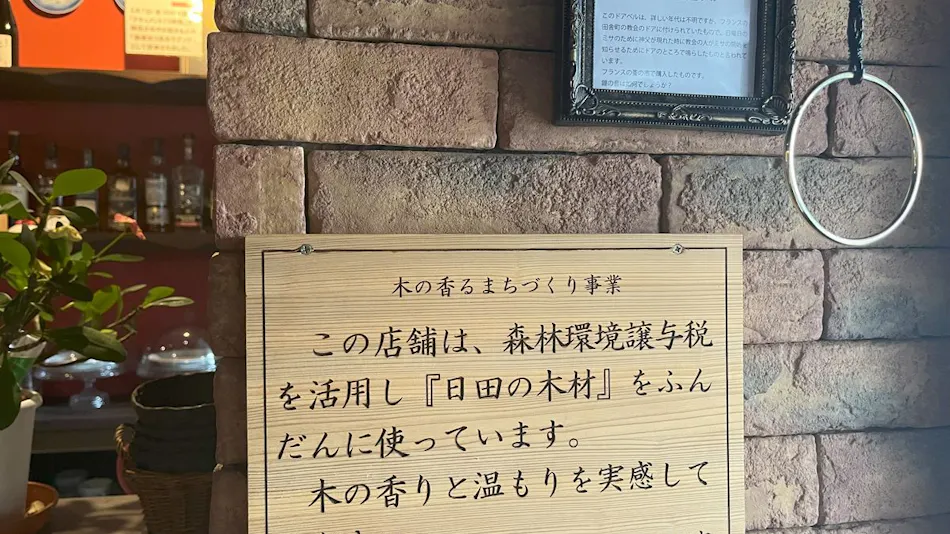 このドアベルは、詳しい年代は不明ですが、フランスの
田舎町の教会のドアに付けられていたもので、
ミサのために神父が現れた時に教会の人がミサの開始を
知らせるためにドアのところで鳴らしたものと言われて
います。
フランスの蚤の市で購入したものです。
木の香るまちづくり事業
この店舗は、森林環境譲与税
を活用し『日田の木材』をふん
だんに使っています。
木の香りと温もりを実感して